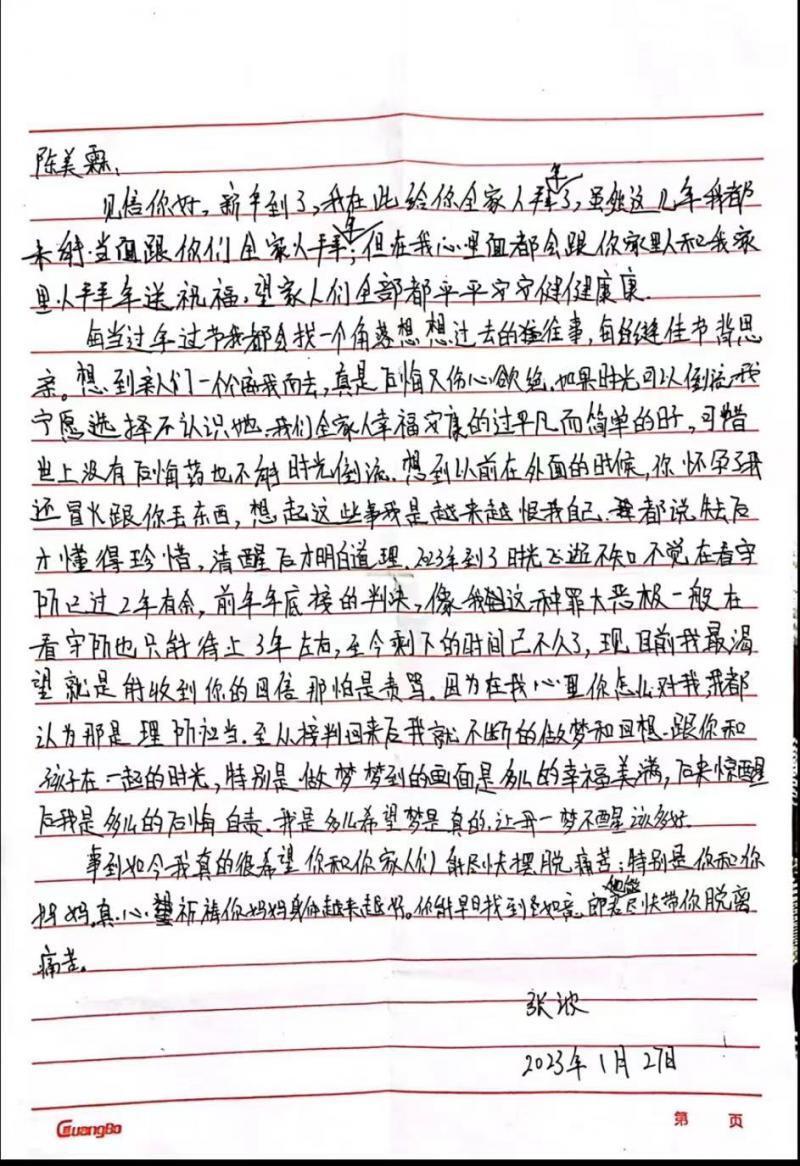 陈美霖:
见信你好,新年到了,我在此给你全家人拜年了,虽然这几年我都
未能当面跟你们全家人拜年;但在我心里面都会跟你家里人和我家
里人拜年送祝福,望家人们全部都平平安安健健康康.
每当过年过节我都会找一个角落想想过去的往事,每逢佳节背思
亲。想到亲人们一个个离我而去,真是后悔又伤心欲绝.如果时光可以倒流我
宁愿选择不认识她.我们全家人幸福安康的过平凡而简单的日子,可惜
世上没有后悔药也不能时光倒流.想到以前在外面的时候,你怀孕了我
还冒火跟你丢东西,想起这些事我是越来越恨我自己.都说失去后
才懂得珍惜,清醒后才明白道理.2023年到了时光飞逝不知不觉在看守
所已过2年有余,前年年底接的判决,像我这种罪大恶极一般在
看守所也只能待上3年左右,至今剩下的时间已不久了,现目前我最渴
望就是能收到你的回信那怕是责骂.因为在我心里你怎么对我我都
认为那是理所应当.至从接判回来后我就不断的做梦和回想.跟你和
孩子在一起的时光,特别是做梦梦到的画面是多么的幸福美满,后来惊醒
后我是多么的后悔自责.我是多么希望梦是真的.让我一梦不醒该多好.
事到如今我真的很希望你和你家人们能尽快摆脱痛苦;特别是你和你
妈妈.真心祈祷你妈妈身体越来越好。你能早日找到如意郎君他能尽快带你脱离
痛苦。
张波
2023年1月27日
GuangBo
第 页